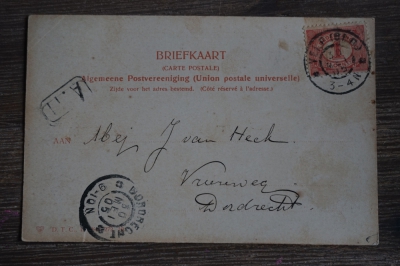 BRIEFKAART
(CARTE POSTALE)
Algemeene Postvereeniging (Union postale universelle)
Zijde voor het adres bestemd. (Côté réservé à l'adresse.)
3-4N
AAN
Mej J van Heck
Vrieseweg
Dordrecht
DORDRECHT
9-10N